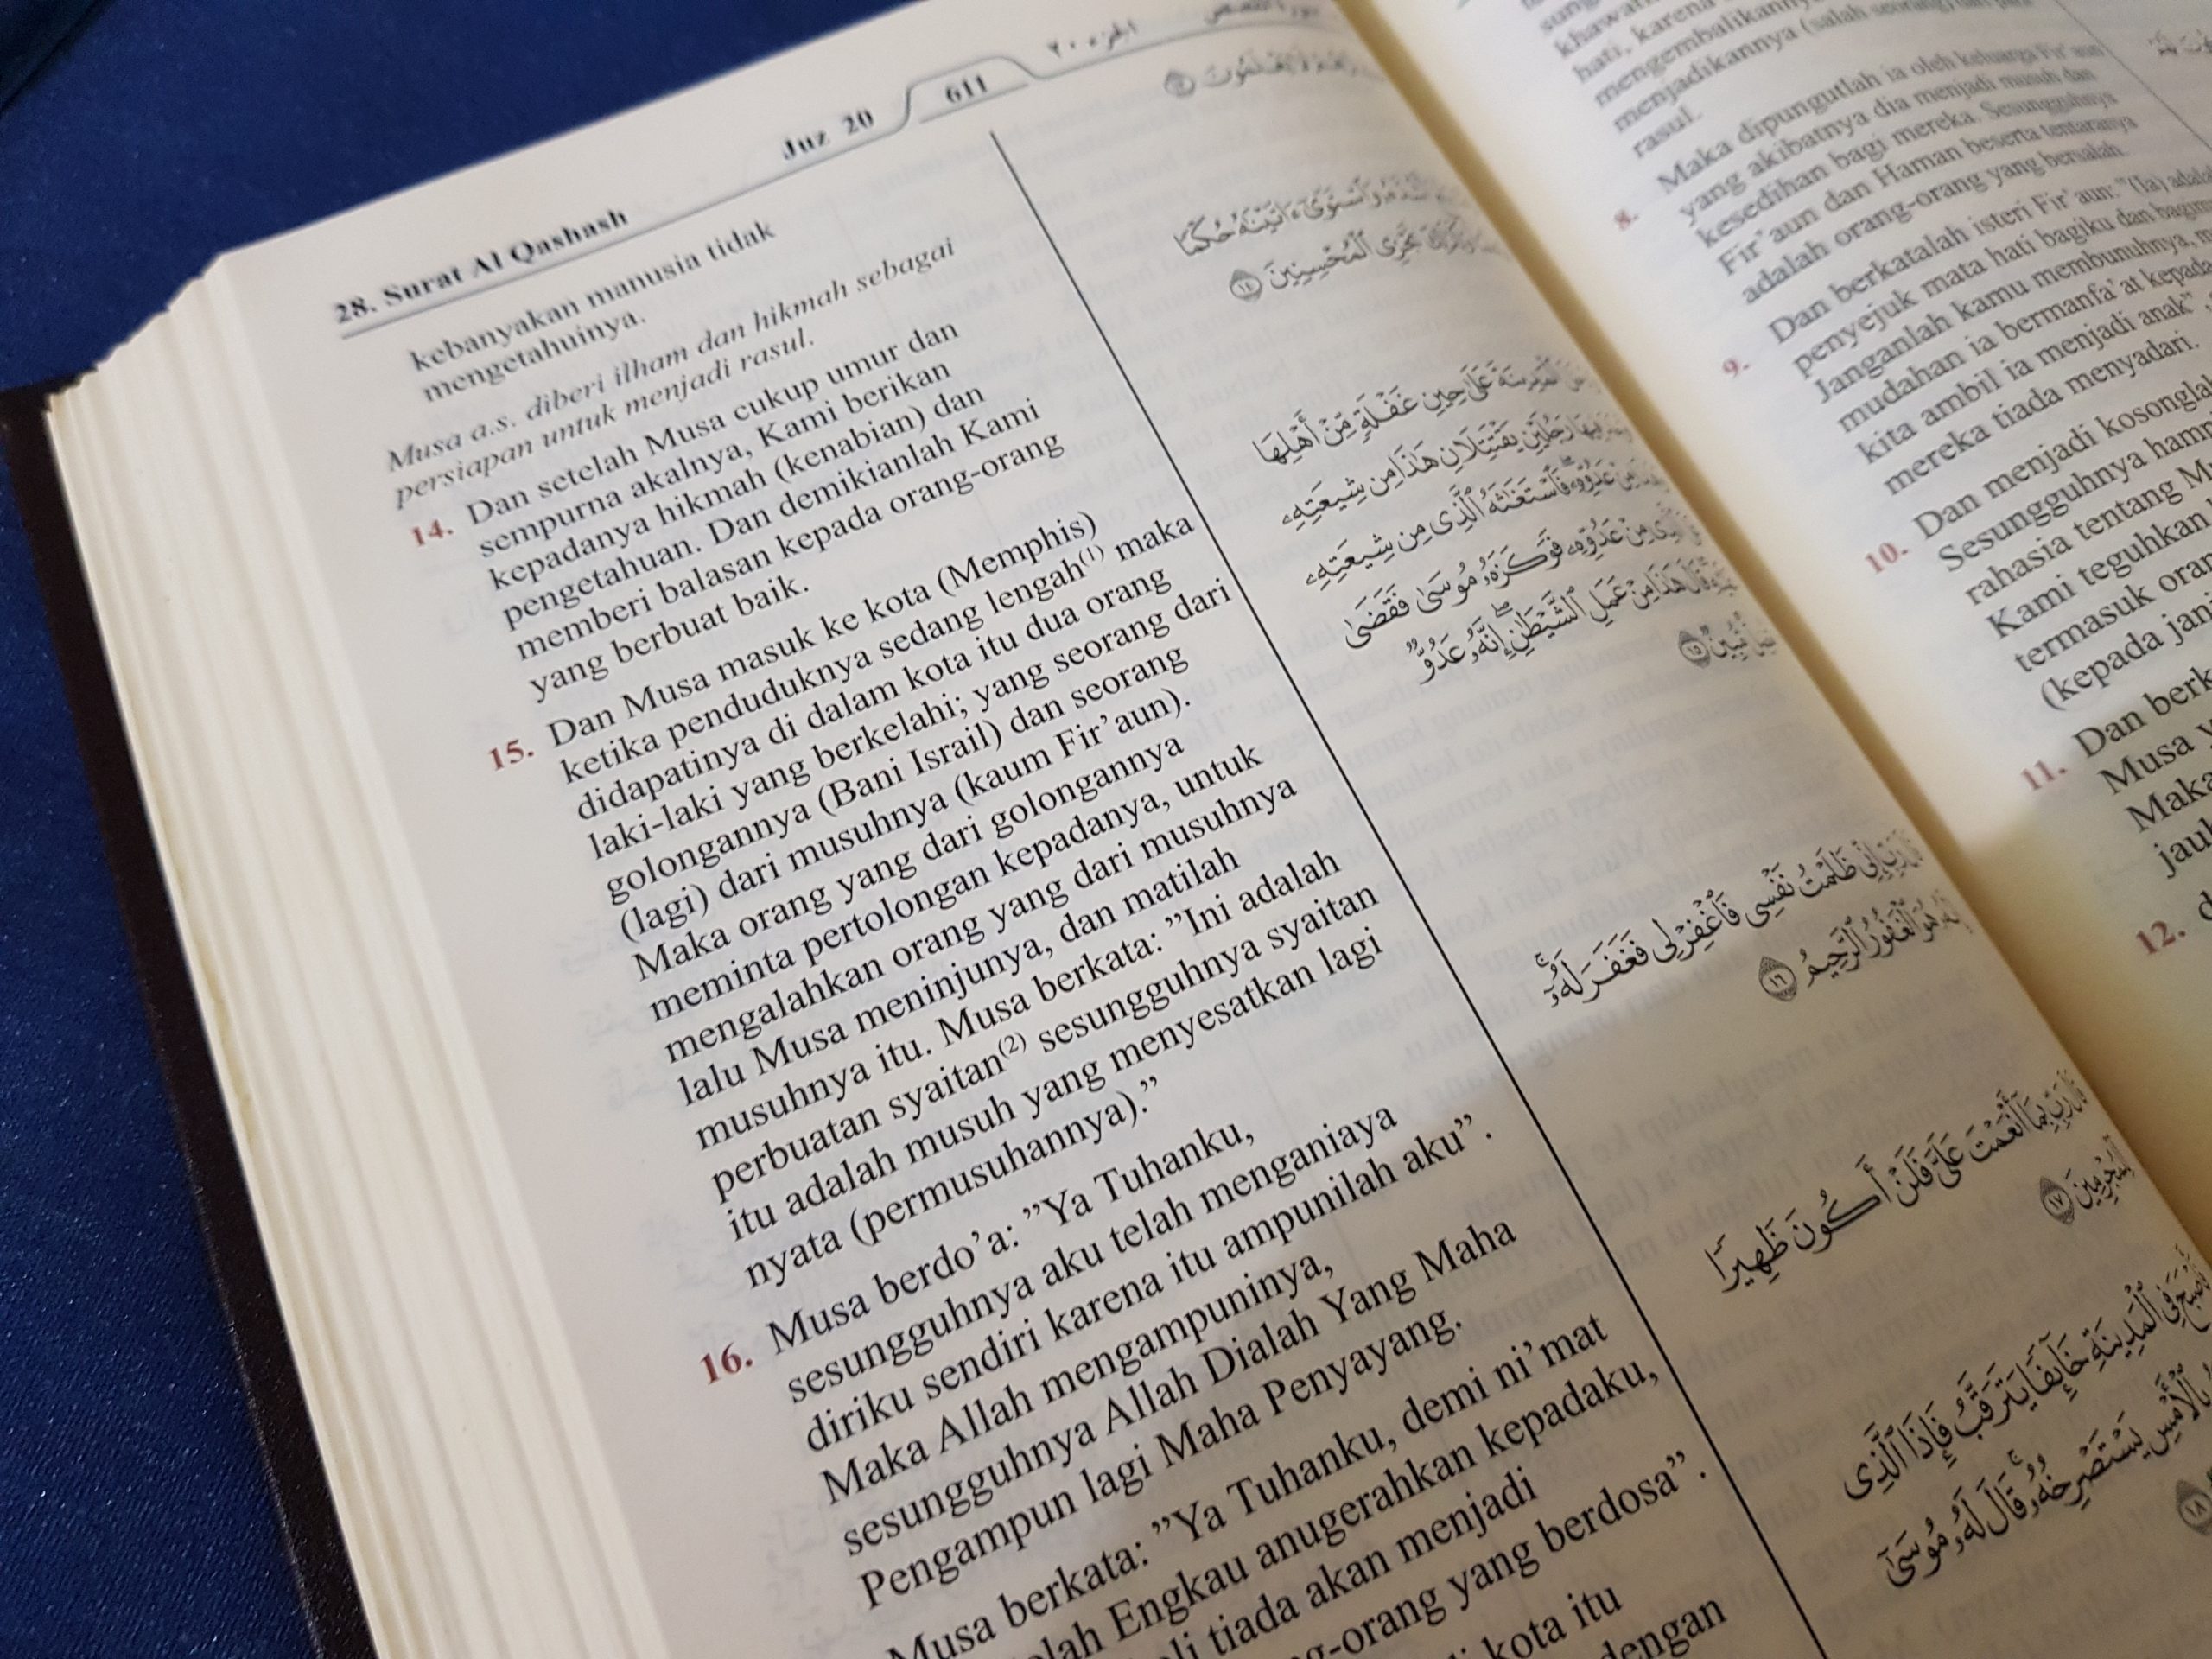 28. Surat Al Qashash
Juz 20
611
الجزء ٢٠
kebanyakan manusia tidak
mengetahuinya.
Musa a.s. diberi ilham dan hikmah sebagai
persiapan untuk menjadi rasul.
14. Dan setelah Musa cukup umur dan
sempurna akalnya, Kami berikan
kepadanya hikmah (kenabian) dan
pengetahuan. Dan demikianlah Kami
memberi balasan kepada orang-orang
yang berbuat baik.
15. Dan Musa masuk ke kota (Memphis)
ketika penduduknya sedang lengah(1) maka
didapatinya di dalam kota itu dua orang
laki-laki yang berkelahi; yang seorang dari
golongannya (Bani Israil) dan seorang
(lagi) dari musuhnya (kaum Fir'aun).
Maka orang yang dari golongannya
meminta pertolongan kepadanya, untuk
mengalahkan orang yang dari musuhnya
lalu Musa meninjunya, dan matilah
musuhnya itu. Musa berkata: "Ini adalah
perbuatan syaitan(2) sesungguhnya syaitan
itu adalah musuh yang menyesatkan lagi
nyata (permusuhannya)."
16. Musa berdo'a: "Ya Tuhanku,
sesungguhnya aku telah menganiaya
diriku sendiri karena itu ampunilah aku".
Maka Allah mengampuninya,
sesungguhnya Allah Dialah Yang Maha
Pengampun lagi Maha Penyayang.
Musa berkata: "Ya Tuhanku, demi ni'mat
Engkau anugerahkan kepadaku,
tiada akan menjadi
yang berdosa".
kota itu
dengan
ءَاتَيْنَٰهُ حُكْمًا
نَجْزِى ٱلْمُحْسِنِينَ ١٤
عَلَىٰ حِينِ غَفْلَةٍ مِّنْ أَهْلِهَا
رَجُلَيْنِ يَقْتَتِلَانِ هَٰذَا مِن شِيعَتِهِۦ
مِنْ عَدُوِّهِۦ فَٱسْتَغَٰثَهُ ٱلَّذِى مِن شِيعَتِهِۦ
مِنْ عَدُوِّهِۦ فَوَكَزَهُۥ مُوسَىٰ فَقَضَىٰ
قَالَ هَٰذَا مِنْ عَمَلِ ٱلشَّيْطَٰنِ إِنَّهُۥ عَدُوٌّ
مُّبِينٌ ١٥
رَبِّ إِنِّى ظَلَمْتُ نَفْسِى فَٱغْفِرْ لِى فَغَفَرَ لَهُۥٓ
هُوَ ٱلْغَفُورُ ٱلرَّحِيمُ ١٦
رَبِّ بِمَآ أَنْعَمْتَ عَلَىَّ فَلَنْ أَكُونَ ظَهِيرًا
لِّلْمُجْرِمِينَ ١٧
فِى ٱلْمَدِينَةِ خَآئِفًا يَتَرَقَّبُ فَإِذَا ٱلَّذِى
بِٱلْأَمْسِ يَسْتَصْرِخُهُۥ قَالَ لَهُۥ مُوسَىٰٓ
١٨
hati, karena
mengembalikannya
menjadikannya (salah seorang) dari para
rasul.
8. Maka dipungutlah ia oleh keluarga Fir'aun
yang akibatnya dia menjadi musuh dan
kesedihan bagi mereka. Sesungguhnya
Fir'aun dan Haman beserta tentaranya
adalah orang-orang yang bersalah.
9. Dan berkatalah isteri Fir'aun: "(Ia) adalah
penyejuk mata hati bagiku dan
Janganlah kamu membunuhnya,
mudahan ia bermanfa'at kepada
kita ambil ia menjadi anak"
mereka tiada menyadari.
10. Dan menjadi kosonglah
Sesungguhnya
rahasia tentang
Kami teguhkan
termasuk
(kepada
11. Dan
Musa
Maka
12.